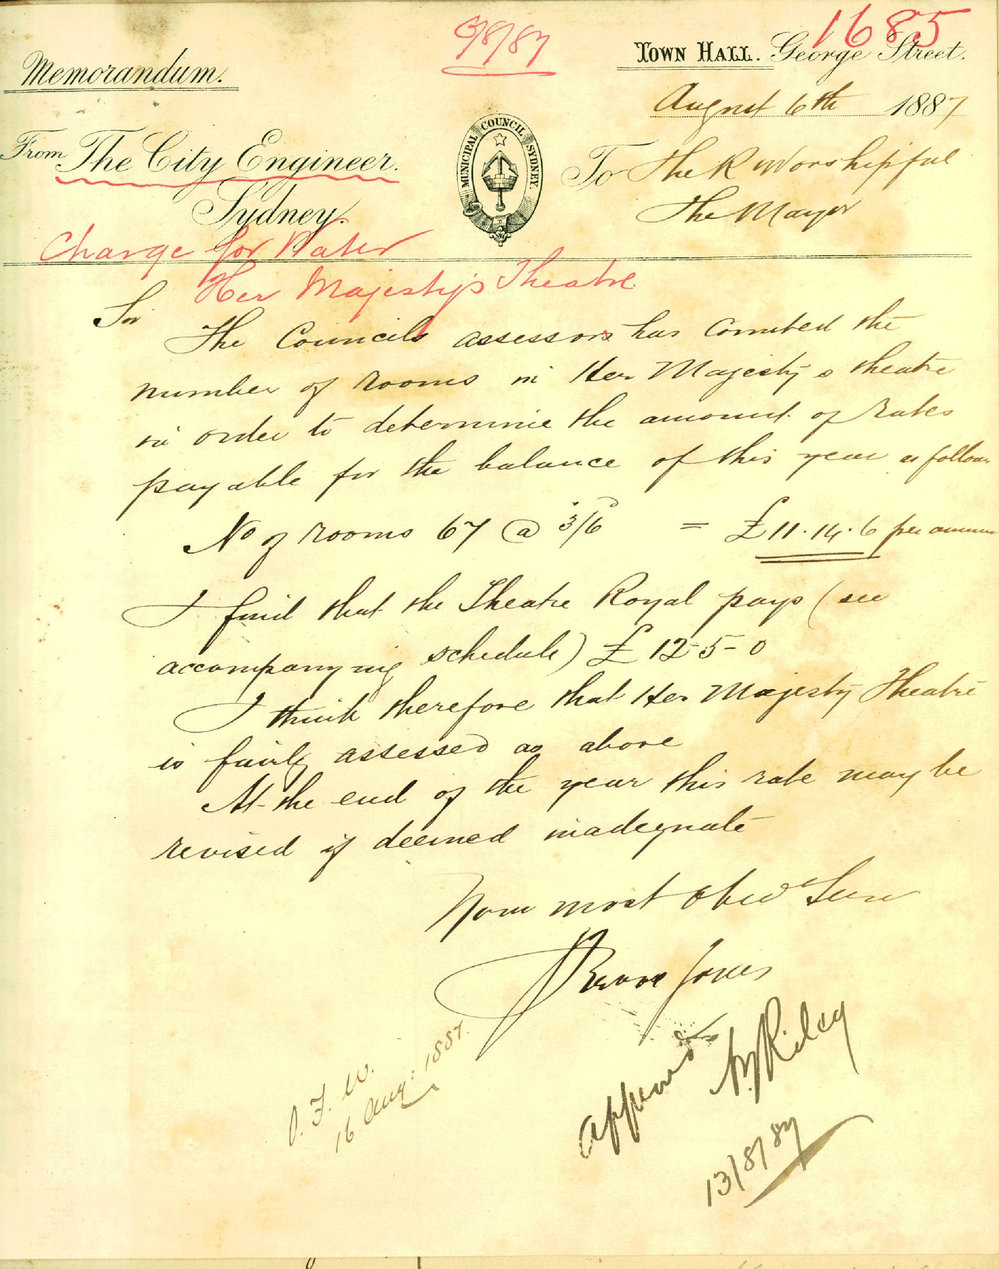 1685
9/8/87
Memorandum.
TOWN HALL. George Street.
August 6th 1887
From The City Engineer.
Sydney.
MUNICIPAL COUNCIL SYDNEY.
To The R Worshipful
The Mayor
Charge for Water
Her Majestys Theatre
Sir
The Councils assessors has counted the
number of rooms in Her Majesty s theatre
in order to determine the amount of rates
payable for the balance of this year as follows
No of rooms 67 @ 3/6 = £11.14.6 per annum
I find that the Theatre Royal pays (see
accompanying schedule) £12-5-0
I think therefore that Her Majesty Theatre
is fairly assessed as above
At the end of the year this rate may be
revised if deemed inadequate
Your most Obed Serv
Trevor Jones
Approved
A J Riley
13/8/87
O. F. W.
16 Aug: 1887.